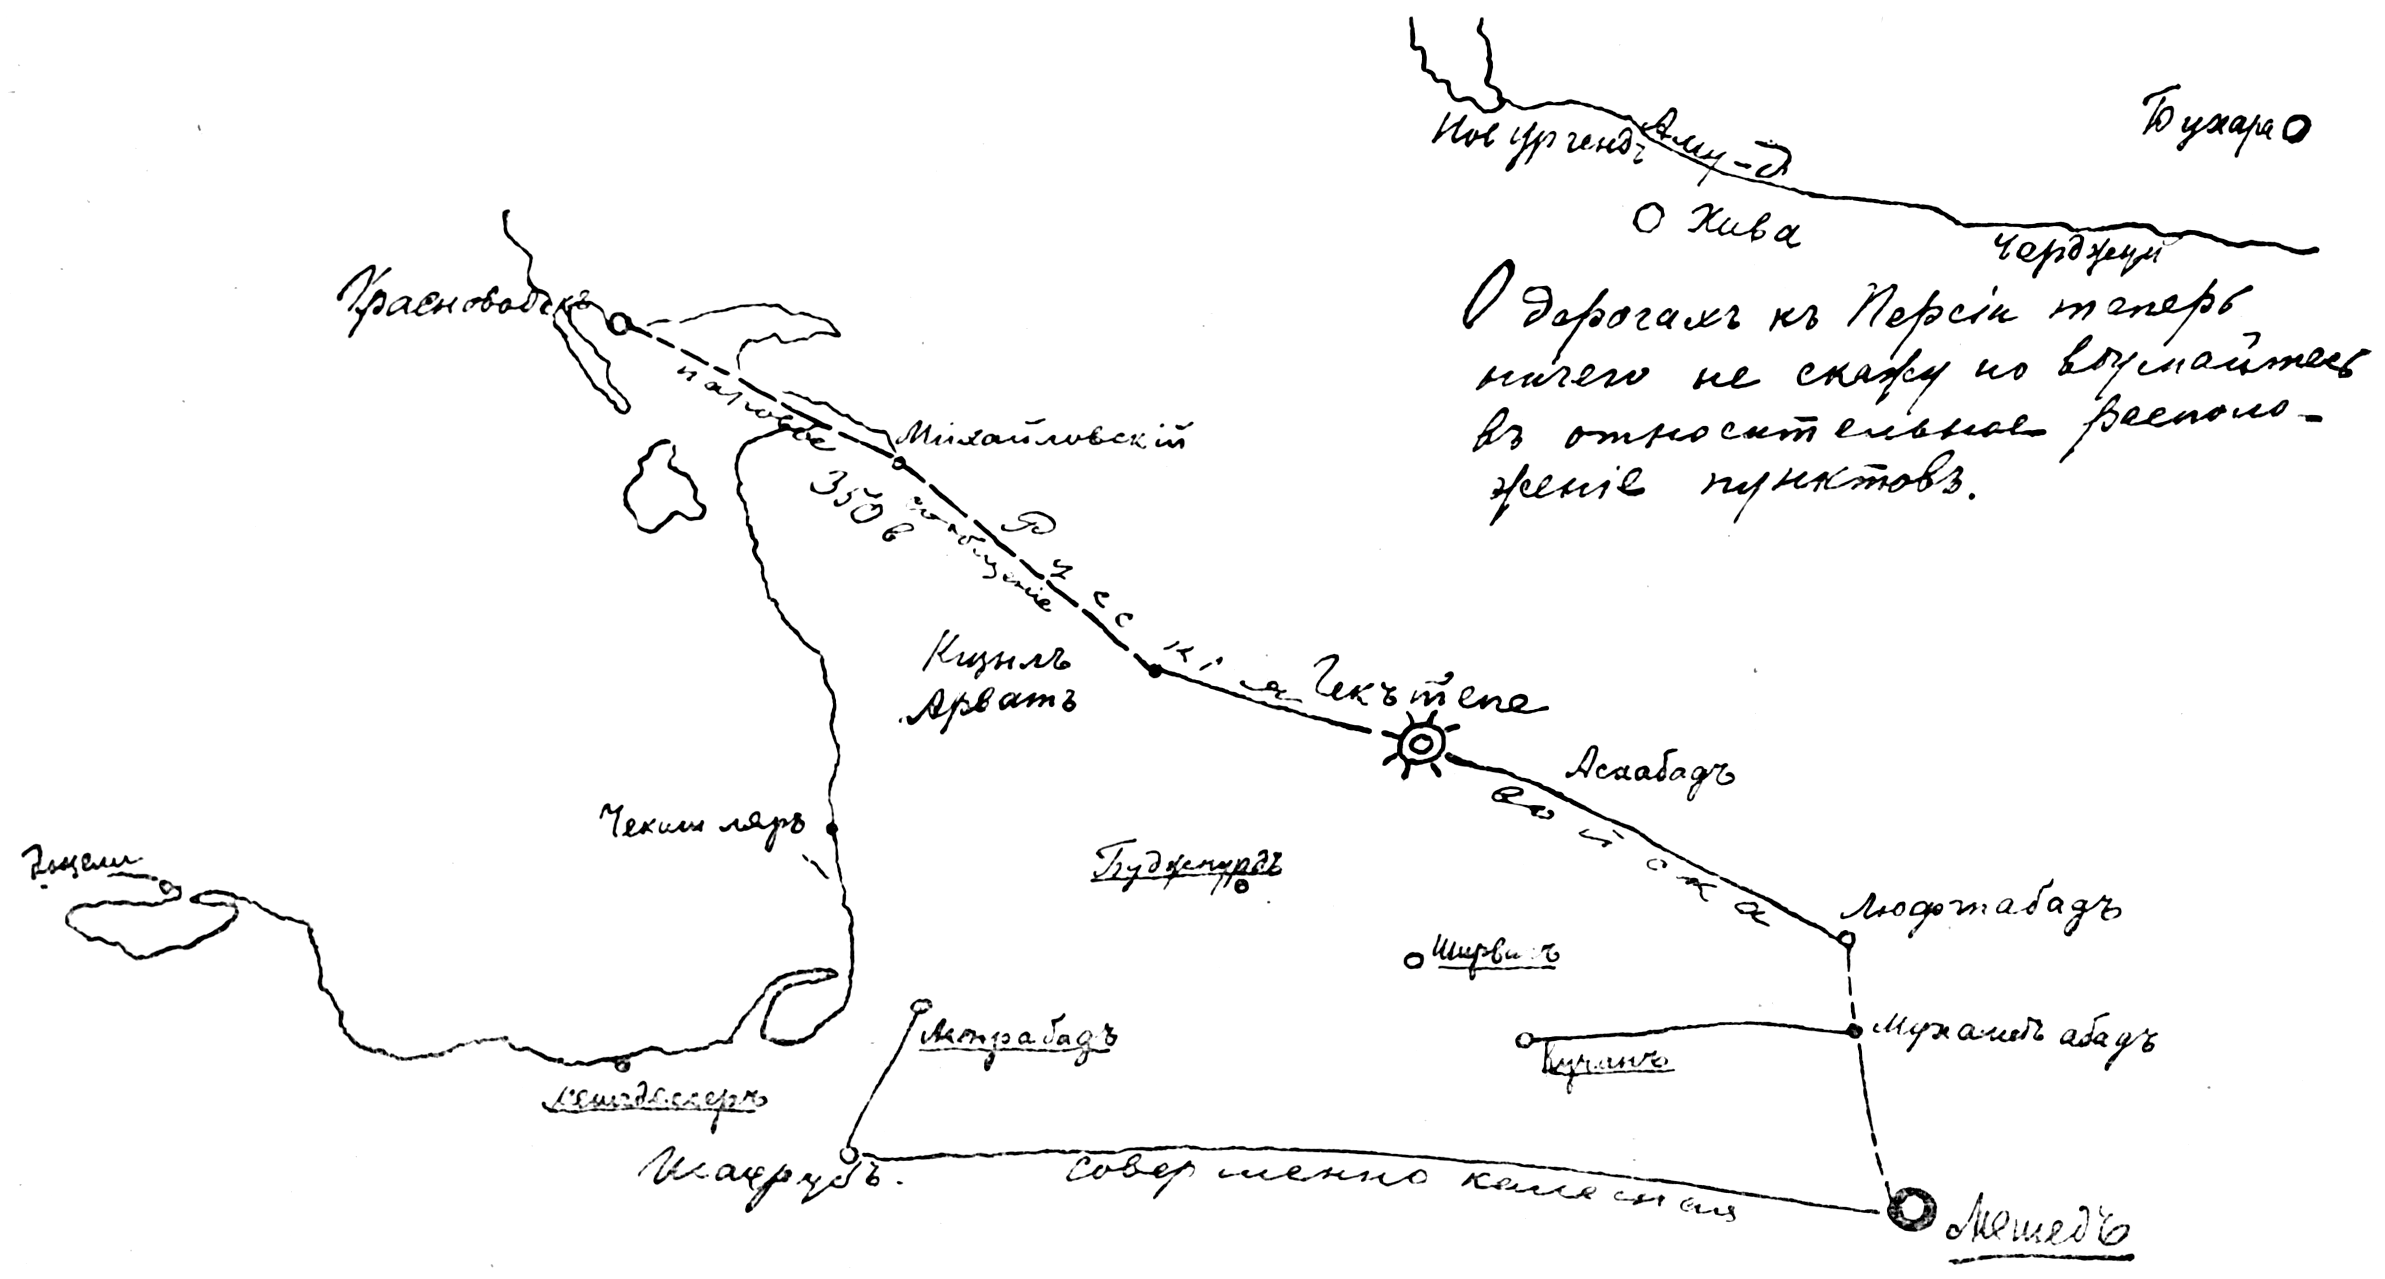 Бухара
Нов Ургендъ
Аму-Д
Хива
Чарджуй
О дорогахъ къ Персіи теперь
ничего не скажу но вдумайтесь
въ относительное располо-
женіе пунктовъ.
Красноводскъ
Михайловскій
паровое
сообщеніе
350 в
Русскія
войска
Кизилъ
Арватъ
Гекъ тепе
Асхабадъ
Чекишляръ
Энзели
Буджнурдъ
Люфтабадъ
Ширванъ
Астрабадъ
Кучанъ
Мухаметъ абадъ
Шахрудъ.
совершенно колесная
Мешедъ